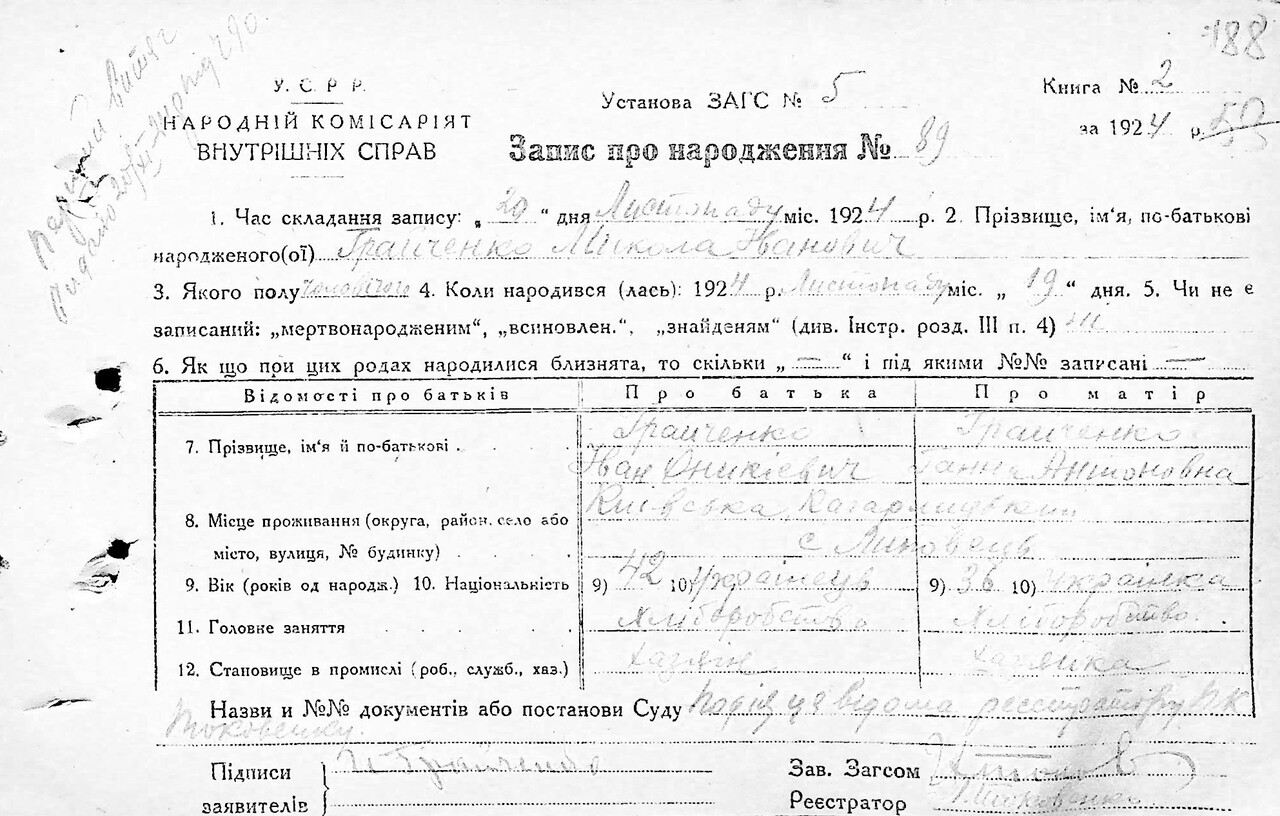 188
У. С. Р. Р.
НАРОДНІЙ КОМІСАРІЯТ
ВНУТРІШНІХ СПРАВ
Установа ЗАГС № 5
Книга № 2
за 1924 р.
Запис про народження № 89
1. Час складання запису: „ 20 “ дня Листопаду міс. 1924 р. 2. Прізвище, ім‘я, по-батькові
народженого(ої) Грайченко Микола Іванович
3. Якого полу чоловічого 4. Коли народився (лась): 1924 р. Листопаду міс. „ 19 “ дня. 5. Чи не є
записаний: „мертвонародженим“, „всиновлен.“, „знайденям“ (див. Інстр. розд. III п. 4) ні
6. Як що при цих родах народилися близнята, то скільки „ — “ і під якими №№ записані —
Відомості про батьків Про батька Про матір
7. Прізвище, ім‘я й по-батькові . . . Грайченко Грайченко
Іван Оникієвич Ганна Антоновна
8. Місце проживання (округа, район, село або Київська, Кагарлицький
місто, вулиця, № будинку) . . . . с. Линовець
9. Вік (років од народж.) 10. Національність 9) 42 10) Українець 9) 36 10) Українка
11. Головне заняття . . . . Хліборобство Хліборобство.
12. Становище в промислі (роб., служб., хаз.) хазяїн хазяйка
Назви и №№ документів або постанови Суду Подія ця відома реєстратору
Підписи Грайченко
заявителів
Зав. Загсом
Реєстратор